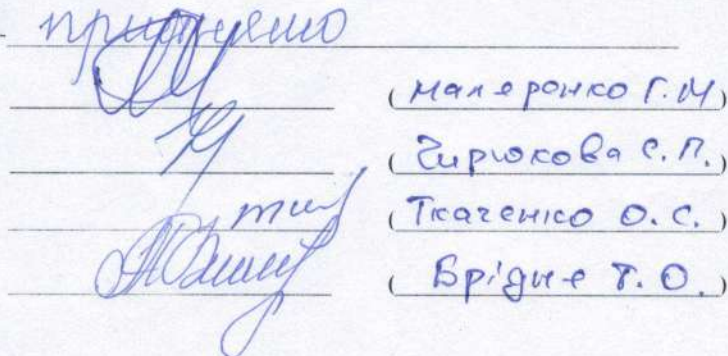 прийнято
(Маляренко Г.М)
(Бирюкова С.П.)
(Ткаченко О.С.)
(Брідне Т.О.)